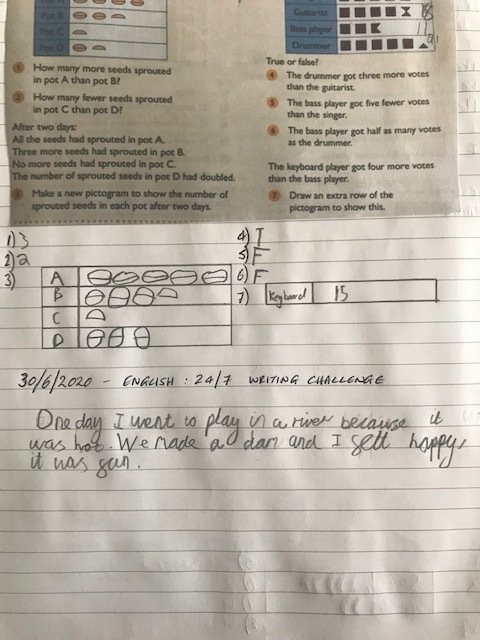 Pot B
Pot C
Pot D
1 How many more seeds sprouted
in pot A than pot B?
2 How many fewer seeds sprouted
in pot C than pot D?
After two days:
All the seeds had sprouted in pot A.
Three more seeds had sprouted in pot B.
No more seeds had sprouted in pot C.
The number of sprouted seeds in pot D had doubled.
3 Make a new pictogram to show the number of
sprouted seeds in each pot after two days.
Guitarist 18
Bass player 11
Drummer
True or false?
4 The drummer got three more votes
than the guitarist.
5 The bass player got five fewer votes
than the singer.
6 The bass player got half as many votes
as the drummer.
The keyboard player got four more votes
than the bass player.
7 Draw an extra row of the
pictogram to show this.
1) 3
2) 2
3)
A
B
C
D
4) T
5) F
6) F
7) Keyboard 15
30/6/2020 - ENGLISH : 24/7 WRITING CHALLENGE
One day I went to play in a river because it
was hot. We made a dam and I felt happy,
it was fun.